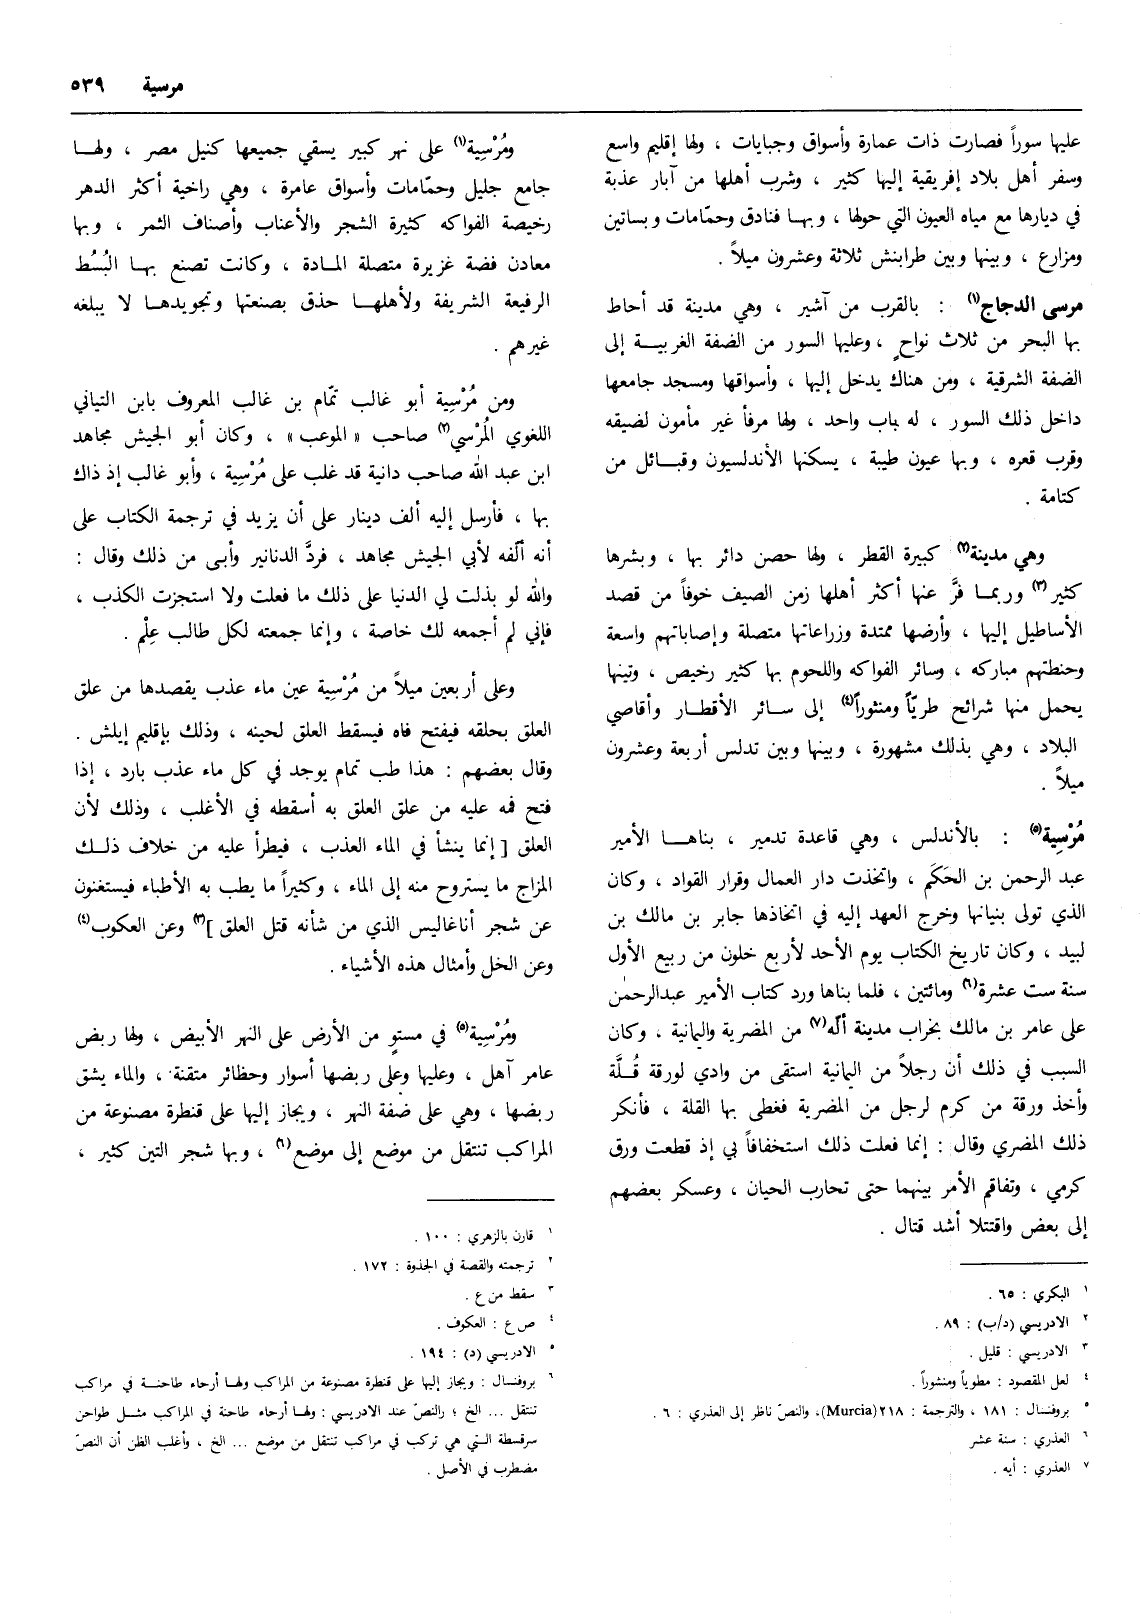 مرسية ٥٣٩
عليها سوراً فصارت ذات عمارة وأسواق وجبايات ، ولها إقليم واسع
وسفر أهل بلاد إفريقية إليها كثير ، وشرب أهلها من آبار عذبة
في ديارها مع مياه العيون التي حولها ، وبها فنادق وحمّامات وبساتين
ومزارع ، وبينها وبين طرابنش ثلاثة وعشرون ميلاً .
مرسى الدجاج(١) : بالقرب من آشير ، وهي مدينة قد أحاط
بها البحر من ثلاث نواحٍ ، وعليها السور من الضفة الغربية إلى
الضفة الشرقية ، ومن هناك يدخل إليها ، وأسواقها ومسجد جامعها
داخل ذلك السور ، له باب واحد ، ولها مرفأ غير مأمون لضيقه
وقرب قعره ، وبها عيون طيبة ، يسكنها الأندلسيون وقبائل من
كتامة .
وهي مدينة(٢) كبيرة القطر ، ولها حصن دائر بها ، وبشرها
كثير(٣) وربما فرَّ عنها أكثر أهلها زمن الصيف خوفاً من قصد
الأساطيل إليها ، وأرضها ممتدة وزراعاتها متصلة وإصاباتهم واسعة
وحنطتهم مباركه ، وسائر الفواكه واللحوم بها كثير رخيص ، وتينها
يحمل منها شرائح طريّاً ومنثوراً(٤) إلى سائر الأقطار وأقاصي
البلاد ، وهي بذلك مشهورة ، وبينها وبين تدلس أربعة وعشرون
ميلاً .
مُرْسِية(٥) : بالأندلس ، وهي قاعدة تدمير ، بناها الأمير
عبد الرحمن بن الحَكَم ، واتخذت دار العمال وقرار القواد ، وكان
الذي تولى بنيانها وخرج العهد إليه في اتخاذها جابر بن مالك بن
لبيد ، وكان تاريخ الكتاب يوم الأحد لأربع خلون من ربيع الأول
سنة ست عشرة(٦) ومائتين ، فلما بناها ورد كتاب الأمير عبدالرحمن
على عامر بن مالك بخراب مدينة ألّه(٧) من المضرية واليمانية ، وكان
السبب في ذلك أن رجلاً من اليمانية استقى من وادي لورقة قُلَّة
وأخذ ورقة من كرم لرجل من المضرية فغطى بها القلة ، فأنكر
ذلك المضري وقال : إنما فعلت ذلك استخفافاً بي إذ قطعت ورق
كرمي ، وتفاقم الأمر بينهما حتى تحارب الحيان ، وعسكر بعضهم
إلى بعض واقتتلا أشد قتال .
١ البكري : ٦٥ .
٢ الادريسي (د/ب) : ٨٩ .
٣ الادريسي : قليل .
٤ لعل المقصود : مطوياً ومنشوراً .
٥ بروفنسال : ١٨١ ، والترجمة : ٢١٨ (Murcia)، والنصّ ناظر إلى العذري : ٦ .
٦ العذري : سنة عشر
٧ العذري : أيه .
ومُرْسِية(١) على نهر كبير يسقي جميعها كنيل مصر ، ولها
جامع جليل وحمّامات وأسواق عامرة ، وهي راخية أكثر الدهر
رخيصة الفواكه كثيرة الشجر والأعناب وأصناف الثمر ، وبها
معادن فضة غزيرة متصلة المادة ، وكانت تصنع بها البُسُط
الرفيعة الشريفة ولأهلها حذق بصنعتها وتجويدها لا يبلغه
غيرهم .
ومن مُرْسِية أبو غالب تمّام بن غالب المعروف بابن التياني
اللغوي المُرْسي(٢) صاحب « الموعب » ، وكان أبو الجيش مجاهد
ابن عبد الله صاحب دانية قد غلب على مُرْسِية ، وأبو غالب إذ ذاك
بها ، فأرسل إليه ألف دينار على أن يزيد في ترجمة الكتاب على
أنه ألّفه لأبي الجيش مجاهد ، فردَّ الدنانير وأبى من ذلك وقال :
والله لو بذلت لي الدنيا على ذلك ما فعلت ولا استجزت الكذب ،
فإني لم أجمعه لك خاصة ، وإنما جمعته لكل طالب عِلْم .
وعلى أربعين ميلاً من مُرْسِية عين ماء عذب يقصدها من علق
العلق بحلقه فيفتح فاه فيسقط العلق لحينه ، وذلك بإقليم إيلش .
وقال بعضهم : هذا طب تمام يوجد في كل ماء عذب بارد ، إذا
فتح فمه عليه من علق العلق به أسقطه في الأغلب ، وذلك لأن
العلق [ إنما ينشأ في الماء العذب ، فيطرأ عليه من خلاف ذلك
المزاج ما يستروح منه إلى الماء ، وكثيراً ما يطب به الأطباء فيستغنون
عن شجر أناغاليس الذي من شأنه قتل العلق ](٣) وعن العكوب(٤)
وعن الخل وأمثال هذه الأشياء .
ومُرْسِية(٥) في مستوٍ من الأرض على النهر الأبيض ، ولها ربض
عامر آهل ، وعليها وعلى ربضها أسوار وحظائر متقنة ، والماء يشق
ربضها ، وهي على ضفة النهر ، ويجاز إليها على قنطرة مصنوعة من
المراكب تنتقل من موضع إلى موضع(٦) ، وبها شجر التين كثير ،
١ قارن بالزهري : ١٠٠ .
٢ ترجمته والقصة في الجذوة : ١٧٢ .
٣ سقط من ع .
٤ ص ع : العكوف .
٥ الادريسي (د) : ١٩٤ .
٦ بروفنسال : ويجاز إليها على قنطرة مصنوعة من المراكب ولها أرحاء طاحنة في مراكب
تنتقل ... الخ ؛ والنصّ عند الادريسي : ولها أرحاء طاحنة في المراكب مثل طواحن
سرقسطة التي هي تركب في مراكب تنتقل من موضع ... الخ ، وأغلب الظن أن النصّ
مضطرب في الأصل .